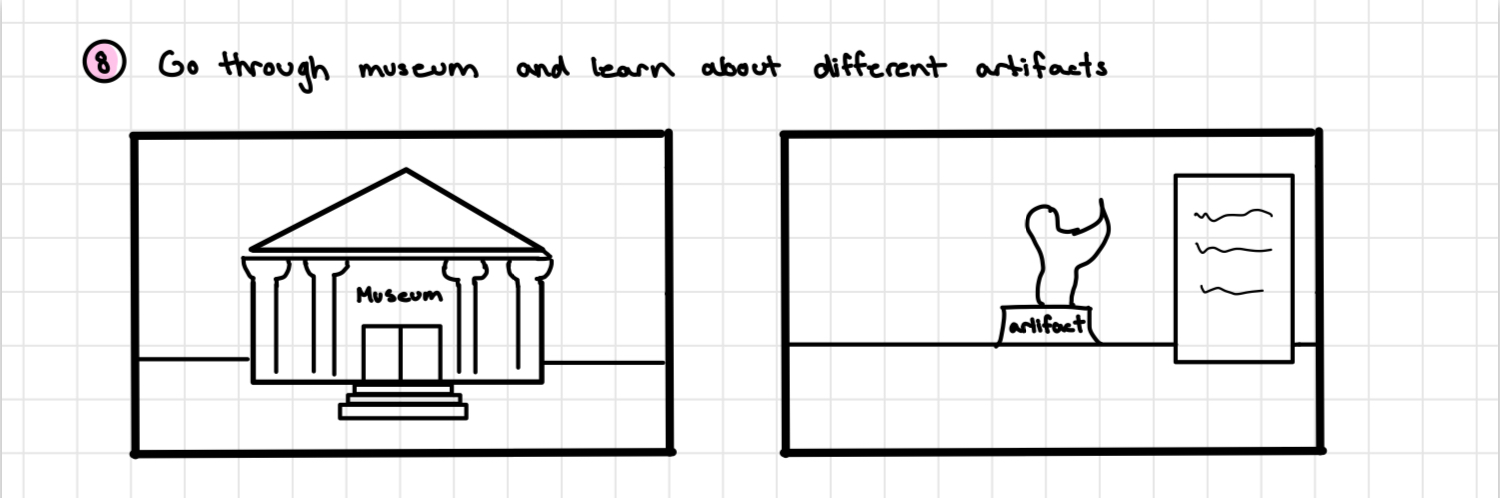 8 Go through museum and learn about different artifacts
Museum
artifact